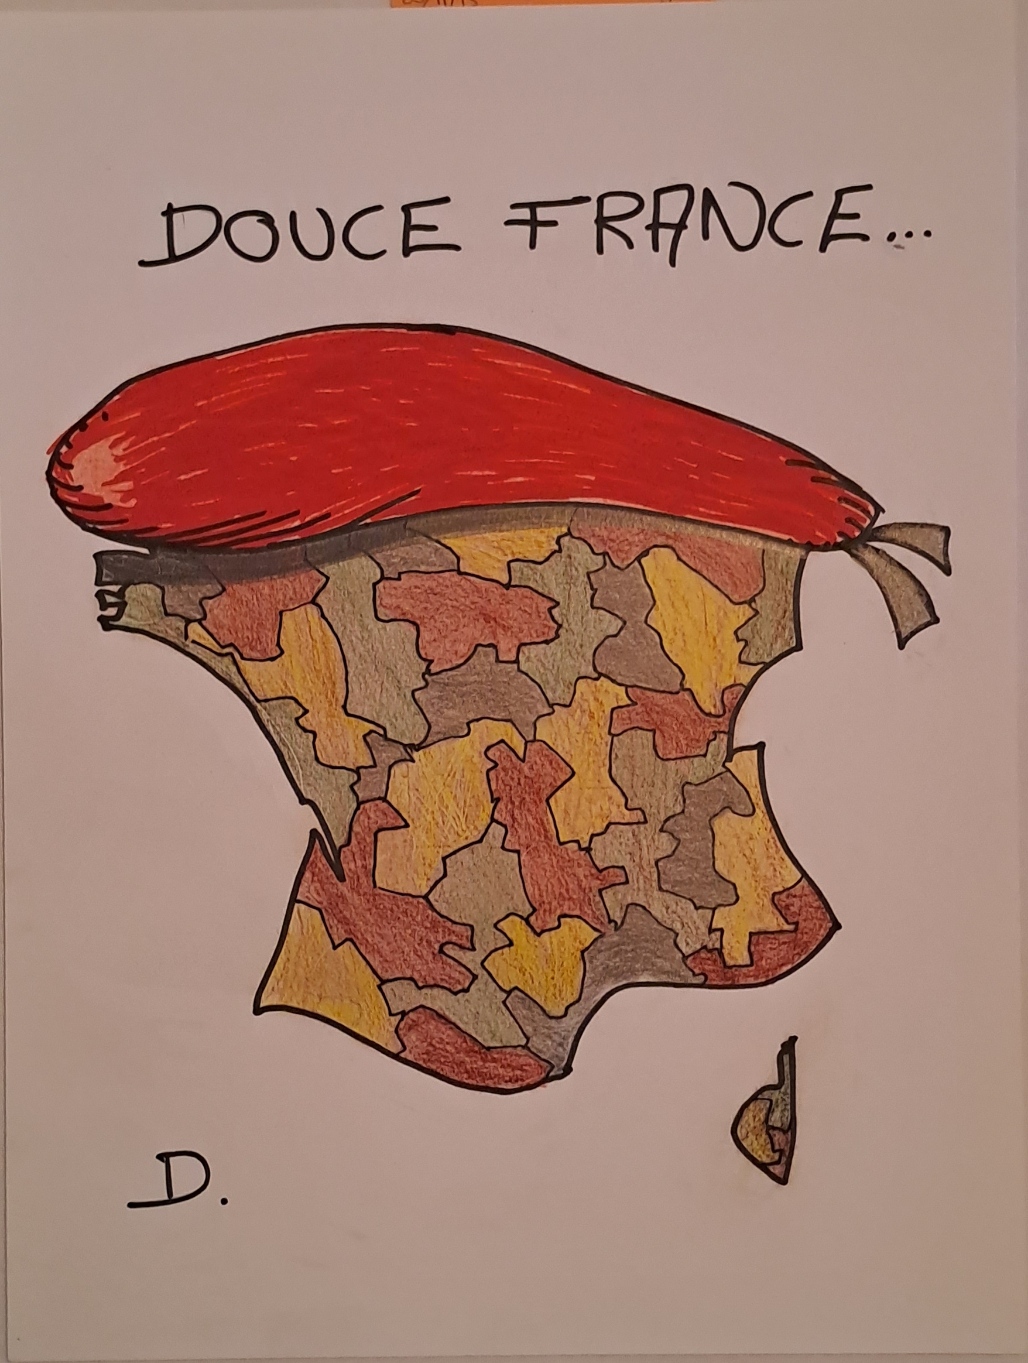 DOUCE FRANCE...
D.